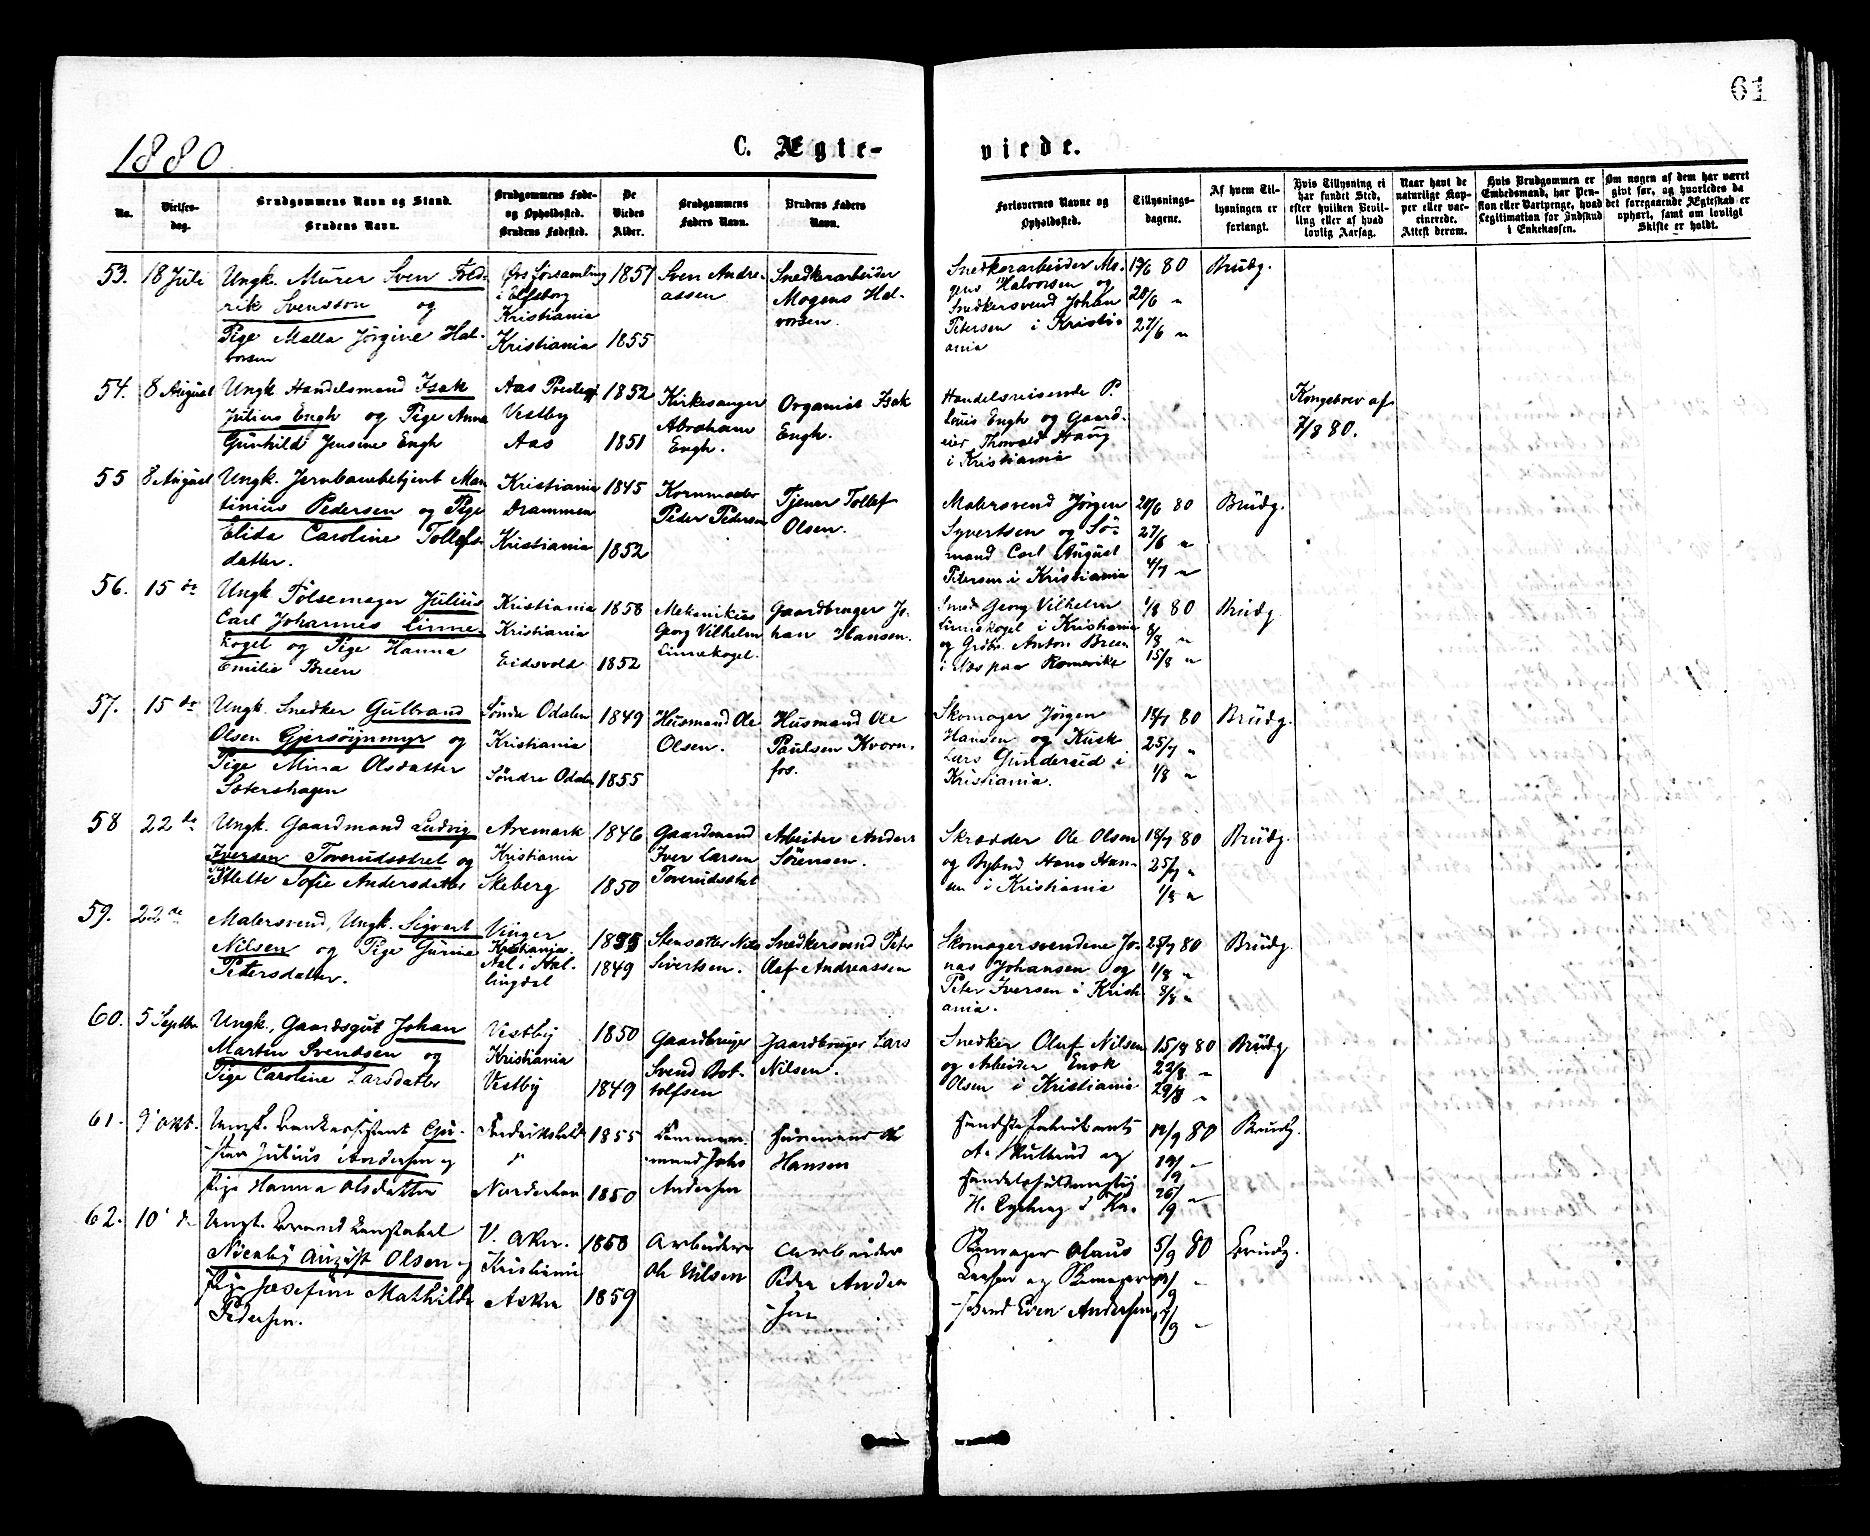 61
1880
C. Ægte-
viede.
No.
Vielses-
dag.
Brudgommens Navn og Stand.
Brudens Navn.
Brudgommens Føde-
og Opholdssted.
Brudens Fødested.
De
Viedes
Alder.
Brudgommens
Faders Navn.
Brudens Faders
Navn.
Forlovernes Navne og
Opholdssted.
Tillysnings-
dagene.
Af hvem Til-
lysningen er
forlangt.
Hvis Tillysning ei
har fundet Sted,
efter hvilken Bevil-
ling eller af hvad
lovlig Aarsag.
Naar havt de
naturlige Kop-
per eller vac-
cinerede.
Attest derom.
Hvis Brudgommen er
Embedsmand, har Pen-
sion eller Vartpenge, hvad
Legitimation for Indskud
i Enkekassen.
Om nogen af dem har været
gift før, og hvorledes da
det foregaaende Ægteskab er
ophørt, samt om lovligt
Skifte er holdt.
53. 18 Juli
Ungk. Murer Sven Fred-
rik Svendson og
Pige Malla Jørgine Hal-
vorsen
Ørs Forsamling
i Elfsborg
Kristiania
Kristiania
1857
1855
Sven Andre-
assen
Snedkerarbeider
Mogens Hal-
vorsen.
Snedkerarbeider Mo-
gens Halvorsen og
Snedkersvend Johan
Petersen i Kristi-
ania
13/6 80
20/6 "
27/6 "
Brudg.
54. 8 August
Ungk Handelsmand Isak
Julius Engh og Pige Anna
Gunhild Jensine Engh
Aas Prestegj
Vestby
Aas
1852
1851
Kirkesanger
Abraham
Engh.
Organist Isak
Engh.
Handelsreisende P.
Louis Engh og Gaard-
eier Thorvald Haug
i Kristiania
Kongebrev af
7/8 80.
55 8 August
Ungk. Jernbanebetjent Mar
tinius Pedersen og Pige
Elida Caroline Tollefs-
datter.
Kristiania
Drammen
Kristiania
1845
1852
Kornmaaler
Peder Pedersen
Tjener Tollef
Olsen.
Malersvend Jørgen
Syvertsen og Sø-
mand Carl August
Petersen i Kristiania
20/6 80
27/6 "
4/7 "
Brudg.
56. 15 de
Ungk Pølsemager Julius
Carl Johannes Linne-
kogel og Pige Hanna
Emilie Breen
Kristiania
Kristiania
Eidsvold
1858
1852
Mekanikus
Georg Vilhelm
Linnekogel.
Gaardbruger Jo-
han Hansen.
Smed Georg Vilhelm
Linnekogel i Kristiania
og Grdbr. Anton Breen
i Næs paa Romerike
1/8 80
8/8 "
15/8 "
Brudg.
57. 15 de
Ungk. Snedker Gulbrand
Olsen Gjersøiynmyr og
Pige Mina Olsdatter
Sætershagen
Søndre Odalen
Kristiania
Søndre Odalen
1849
1855
Husmand Ole
Olsen.
Husmand Ole
Paulsen Kvern-
fos.
Skomager Jørgen
Hansen og Kusk
Lars Gundersed i
Kristiania.
18/7 80
25/7 "
1/8 "
Brudg.
58 22 de
Ungk. Gaardmand Ludvig
Iversen Toverudsstret og
Pige Mette Sofie Andersdatter
Aremark
Kristiania
Skeberg
1846
1850
Gaardmand
Iver Larsen
Toverudsstret
Arbeider Anders
Sörensen.
Skrædder Ole Olsen
og Bybud Hans Han-
sen i Kristiania
18/7 80
25/7 "
1/8 "
Brudg.
59. 22 de
Malersvend, Ungk. Sigvert
Nilsen og Pige Gurine
Petersdatter.
Vinger
Kristiania
Aal i Hal-
lingdal
1855
1849
Stensætter Nils
Sivertsen.
Snedkersvend Peter
Olaf Andreassen
Skomagersvendene Jo-
nas Johansen og
Peter Iversen i Krist-
ania.
25/7 80
1/8 "
8/8 "
Brudg.
60. 5 Septbr
Ungk., Gaardsgut Johan
Martin Svendsen og
Pige Caroline Larsdatter
Vestby
Kristiania
Vestby
1850
1849
Gaardbruger
Svend Bot-
tolfsen
Gaardbruger Lars
Nilsen.
Snedker Oluf Nilsen
og Arbeider Enok
Olsen i Kristiania
15/8 80
22/8 "
29/8 "
Brudg
61. 9' Okt.
Ungk. Bankassistent Gu-
stav Julius Andersen og
Pige Hanna Olsdatter
Fredrikshald
"
Norderhov
1855
1850
Tømmer-
mand Johs
Andersen
Husmand Ole
Hansen
A. Hultrud og
H. i Kr.
12/9 80
19/9 "
26/9 "
Brudg.
62. 10' d
Ungk. Brand Konstabel
August Olsen og
Pige Josefine Mathilde
Pedersen.
V. Aker.
Kristiania
Asker
1858
1859
Arbeider
Ole Nilsen
Arbeider
Peder Ander
sen
Skomager Olaus
Larsen og Skomager-
svend Even Andersen
5/9 80
12/9 "
19/9 "
Brudg.